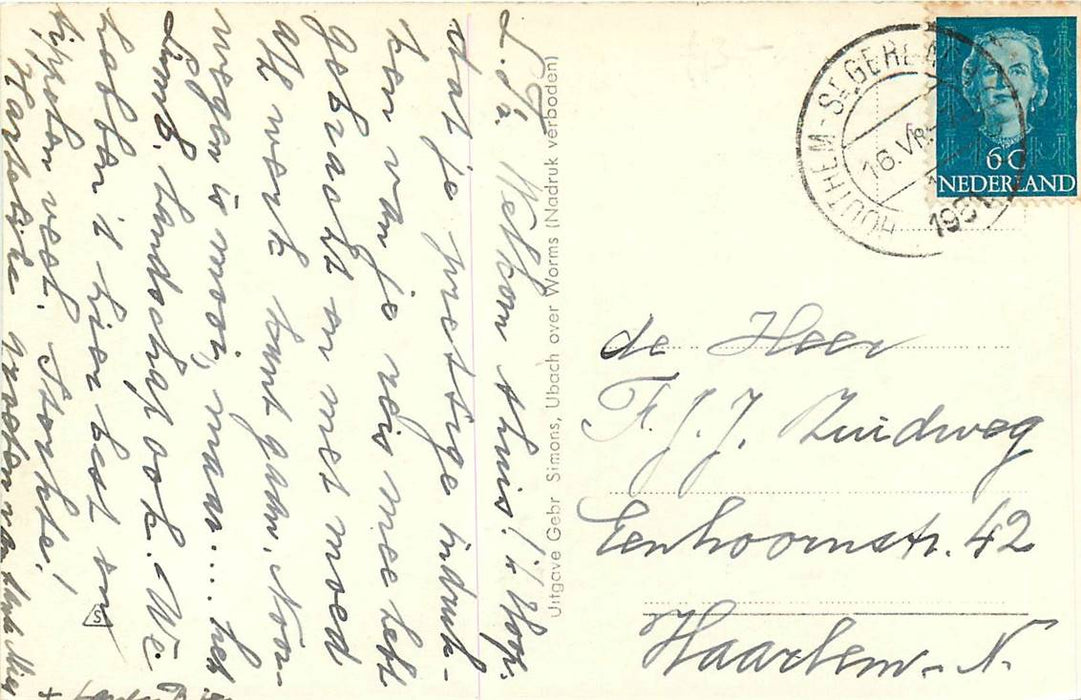 L. Fr. Welkom thuis! 'k Hoop,
dat je prettige indruk-
ken van je reis mee hebt
gebracht en met moed
a/h werk kunt gaan. Noor-
wegen is mooi, maar.... het
Limb. landschap ook. We
hebben 't hier best en
trippelen veel. Sterkte!
Hartelijke groeten van tante Mies
+
Uitgave Gebr Simons, Ubach over Worms (Nadruk verboden)
S
HOUTHEM-ST. GERLACH
16.VII
195
6 C
NEDERLAND
de Heer
F. J. J. Zuidweg
Eenhoornstr. 42
Haarlem-N.